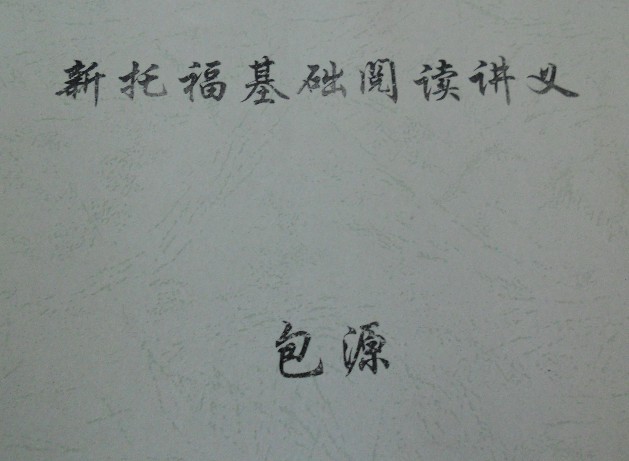 新托福基础阅读讲义
包源